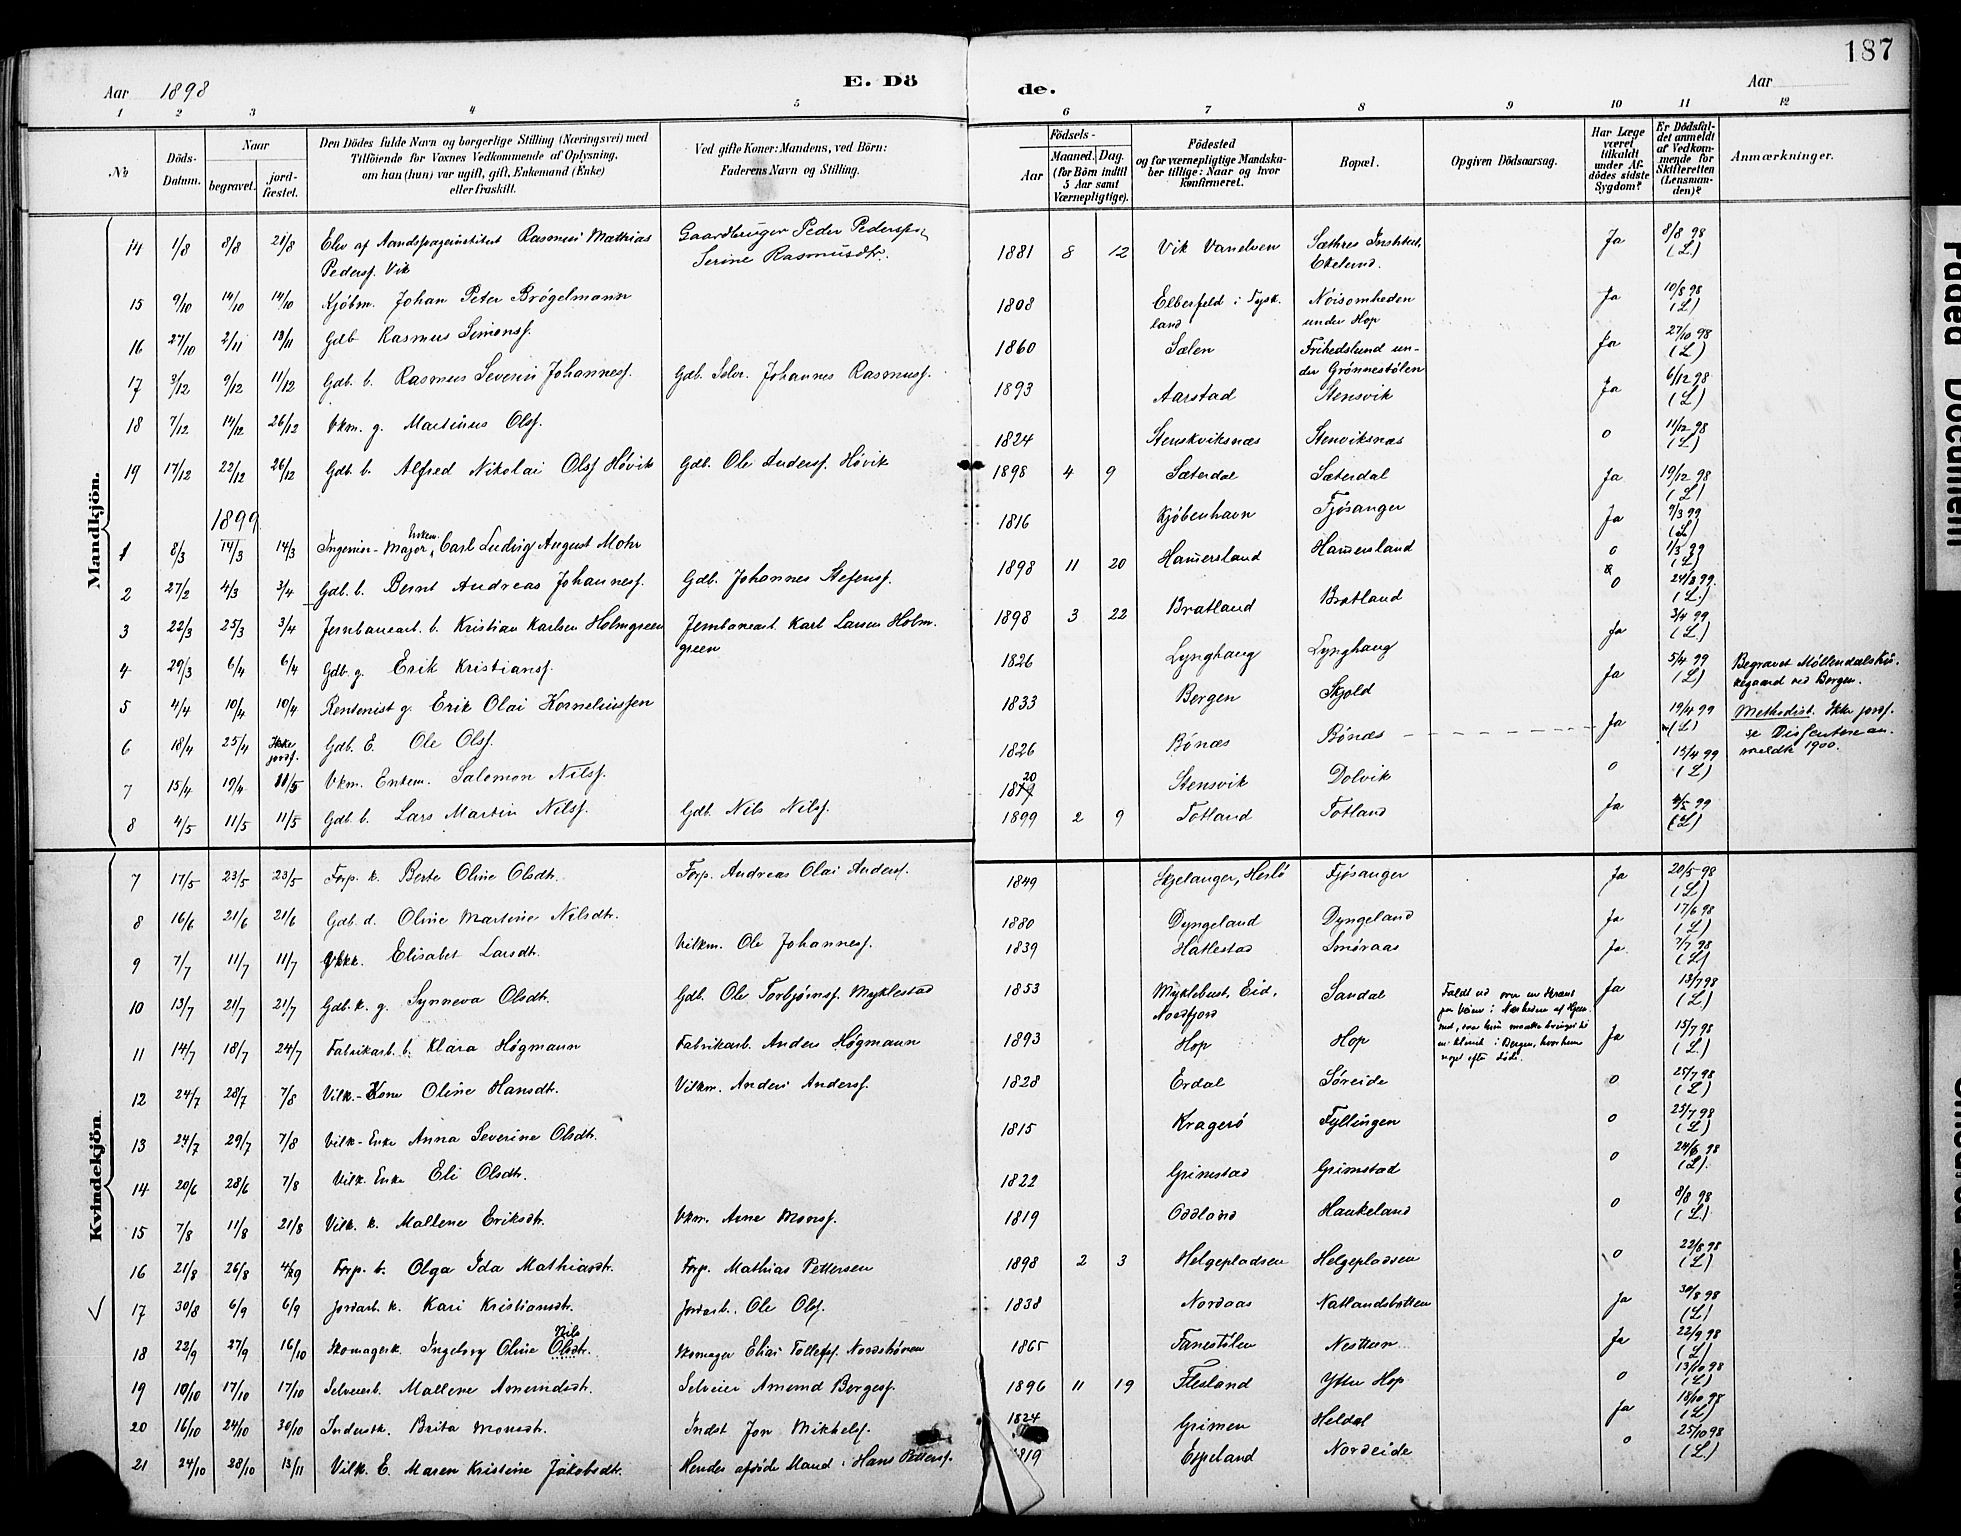 187
Aar 1898 E. Dö de. Aar
1 2 3 4 5 6 7 8 9 10 11 12
No
Döds-Datum.
Naar
begravet.
jord-fæstet.
Den Dödes fulde Navn og borgerlige Stilling (Næringsvei) med
Tilföiende for Voxnes Vedkommende af Oplysning,
om han (hun) var ugift, gift, Enkemand (Enke)
eller fraskilt.
Ved gifte Koner: Mandens, ved Börn:
Faderens Navn og Stilling.
Födsels-
Aar
Maaned. Dag.
(for Börn indtil
5 Aar samt
Værnepligtige).
Födested
og for værnepligtige Mandska-
ber tillige: Naar og hvor
konfirmeret.
Bopæl.
Opgiven Dödsaarsag.
Har Læge
været
tilkaldt
under Af-
dödes sidste
Sygdom?
Er Dödsfal-
det anmeldt
af Vedkom-
mende for
Skifteretten
(Lensman-
den)?
Anmærkninger.
Mandkjön.
14 1/8 8/8 21/8 Elev af Aandssvageinstitut Rasmus Mathias Gaardbruger Peder Peders 1881 8 12 Vik Vanelven Sæthres Institut, Ja 8/8 98
Peders. Vik Serine Rasmusdtr. Ekelund. (L)
15 9/10 14/10 14/10 Kjöbm. Johan Peter Brögelmann 1808 Elberfeld i Tysk- Nöisomheden Ja 10/8 98
land under Hop (L)
16 27/10 2/11 13/11 Gdb Rasmus Simons. 1860 Sælen Frihedslund un- Ja 27/10 98
der Grönnestölen (L)
17 3/12 9/12 11/12 Gdb. b. Rasmus Severin Johannes. Gdb. Selv. Johannes Rasmus. 1893 Aarstad Stensvik Ja 6/12 98
(L)
18 7/12 14/12 26/12 Vkm. g. Martinus Ols. 1824 Stenskviksnæs Stenviksnæs o 11/12 98
(L)
19 17/12 22/12 26/12 Gdb. b. Alfred Nikolai Ols Hövik Gdb. Ole Anders. Hövik 1898 4 9 Sæterdal Sæterdal Ja 19/12 98
(L)
1899
1 8/3 14/3 14/3 Ingeniör-Major, Enkem. Carl Ludvig August Mohr 1816 Kjöbenhavn Fjösanger Ja 9/3 99
(L)
2 27/2 4/3 3/4 Gdb. b. Bernt Andreas Johannes. Gdb. Johannes Stefens. 1898 11 20 Hamersland Hamersland o 1/3 99
(L)
3 22/3 25/3 3/4 Jernbanearb. b. Kristian Karlsen Holmgreen Jernbanearb. Karl Larsen Holm- 1898 3 22 Bratland Bratland o 24/3 99.
green (L.)
4 29/3 6/4 6/4 Gdb. g. Erik Kristians. 1826 Lynghaug Lynghaug Ja 3/4 99
(L.)
5 4/4 10/4 10/4 Rentenist g. Erik Olai Korneliussen 1833 Bergen Skjold Ja 5/4 99 Begravet Möllendalskir-
(L) kegaard ved Bergen.
6 18/4 25/4 Ikke jordf. Gdb. E. Ole Ols. 1826 Bönæs Bönæs Ja 19/4 99 Methodist. Ikke jordf.
(L) se Dissenteran-
meldte 1900.
7 15/4 19/4 11/5 Vkm. Enkem. Salomon Nils. 1820 Stensvik Dolvik o 15/4 99
(L)
8 4/5 11/5 11/5 Gdb. b. Lars Martin Nils. Gdb. Nils Nils. 1899 2 9 Totland Totland Ja 4/5 99
(L)
Kvindekjön
7 17/5 23/5 23/5 Forp. k. Berte Oline Olsdtr. Forp. Andreas Olai Anders. 1849 Skjelanger, Herlö Fjösanger Ja 20/5 98
(L)
8 16/6 21/6 21/6 Gdb. d. Oline Martine Nilsdtr. 1880 Dyngeland Dyngeland Ja 17/6 98
(L)
9 7/7 11/7 11/7 Vkk. Elisabet Larsdtr. Vilkm. Ole Johannes. 1839 Hatlestad Smöraas Ja. 7/7 98
(L)
10 13/7 21/7 21/7 Gdb. k. g. Synneva Olsdtr. Gdb. Ole Torbjörns. Myklestad 1853 Myklebust, Eid, Sandal Faldt ud over en Skrænt Ja 13/7 98
Nordfjord (L)
11 14/7 18/7 24/7 Fabrikarb. b. Klara Högmann Fabrikarb. Anders Högmann 1893 Hop Hop Ja 15/7 98
(L.)
12 24/7 28/7 7/8 Vilk.-Kone Oline Hansdtr. Vilkm. Anders Anders. 1828 Erdal Söreide o 25/7 98
(L)
13 24/7 29/7 7/8 Vilk-Enke Anna Severine Olsdtr. 1815 Kragerö Fyllingen o 25/7 98
(L)
14 20/6 28/6 7/8 Vilk. Enke Eli Olsdtr. 1822 Grimstad Grimstad o 24/6 98
(L).
15 7/8 11/8 21/8 Vilk. k. Mallene Eriksdtr. Vkm. Arne Mons. 1819 Oddland Haukeland o 8/8 98
(L.)
16 21/8 26/8 4/9 Forp. b. Olga Ida Mathiasdtr. Forp. Mathias Pettersen 1898 2 3 Helgepladsen Helgepladsen o 22/8 98
(L)
17 30/8 6/9 6/9 Jordarb. k. Kari Kristiansdtr. Jordarb. Ole Ols. 1838 Nordaas Natlandsbotten Ja 30/8 98
(L)
18 22/9 27/9 16/10 Skomagerk. Ingeborg Oline Nils Olsdtr. Skomager Elias Tollefs. 1865 Fanestölen Nesttun Ja 22/9 98
(L)
19 10/10 17/10 17/10 Selveierb. Mallene Amundsdtr. Selveier Amund Børges. 1896 11 19 Flesland Ytre Hop o 13/10 98
(L)
20 16/10 24/10 30/10 Inderstk. Brita Monsdtr. Indst Jon Mikkels. 1824 Grimen Heldal Ja 18/10 98
(L)
21 24/10 28/10 13/11 Vilk. E. Maren Kristine Jakobsdtr. Hendes afdöde Mand: Hans Petters. 1819 Espeland Nordeide o 25/10 98
(L.)
Faded Document